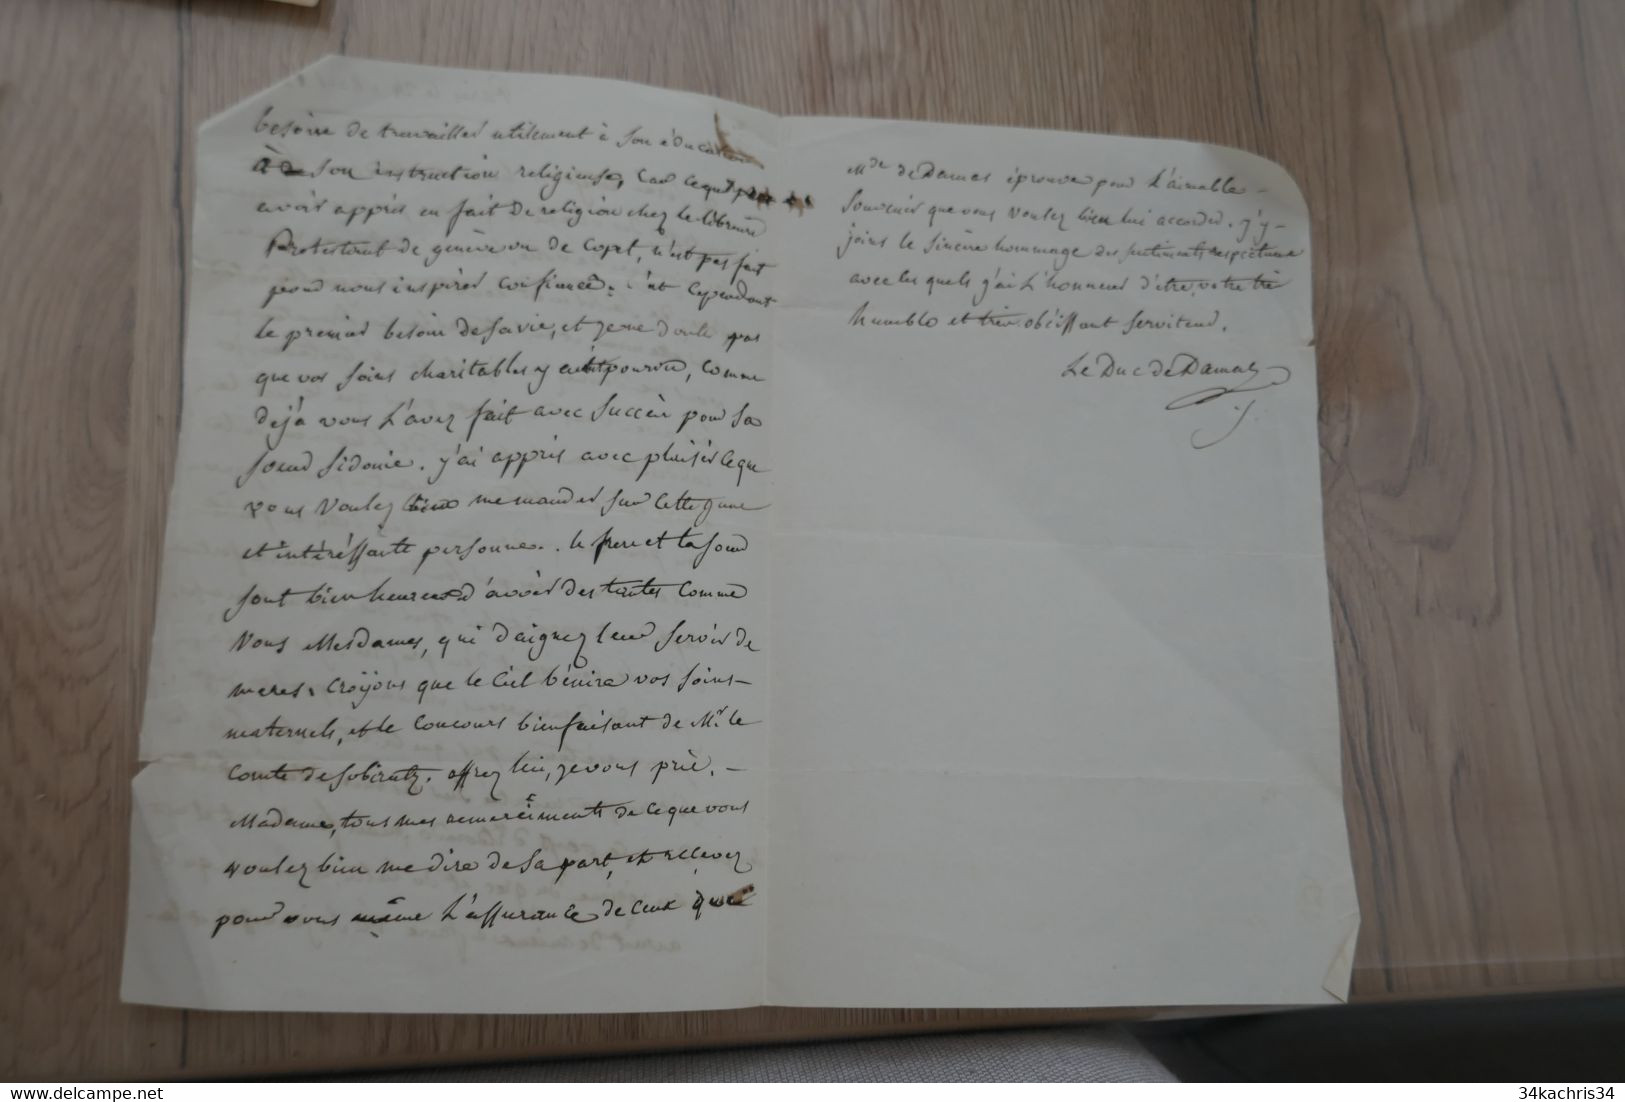 besoin de travailler utilement à son éducation
à son instruction religieuse, car ce qu'il peut
avoir appris en fait de religion chez le libraire
Protestant de genève ou de Copet, n'est pas fait
pour nous inspirer confiance. c'est cependant
le premier besoin de sa vie, et je ne doute pas
que vos soins charitables n'y aient pourvu, comme
déjà vous l'avez fait avec succès pour sa
soeur Sidonie. j'ai appris avec plaisir ce que
vous voulez bien me mander sur cette jeune
et intéressante personne. le frere et la soeur
sont bien heureux d'avoir des tantes comme
vous Mesdames, qui daignez leur servir de
meres. Croyons que le Ciel bénira vos soins
maternels, et le concours bienfaisant de Mr. le
Comte de Sobiratz. offrez lui, je vous prie,
Madame, tous mes remerciments de ce que vous
voulez bien me dire de sa part, et recevez
pour vous même l'assurance de ceux que
Mde de Damas éprouve pour l'aimable
souvenir que vous voulez bien lui accorder. j'y
joins le sincère hommage des sentiments respectueux
avec les quels j'ai l'honneur d'être, votre très
humble et très obéissant serviteur.
Le Duc de Damas
delcampe.net
34kachris34